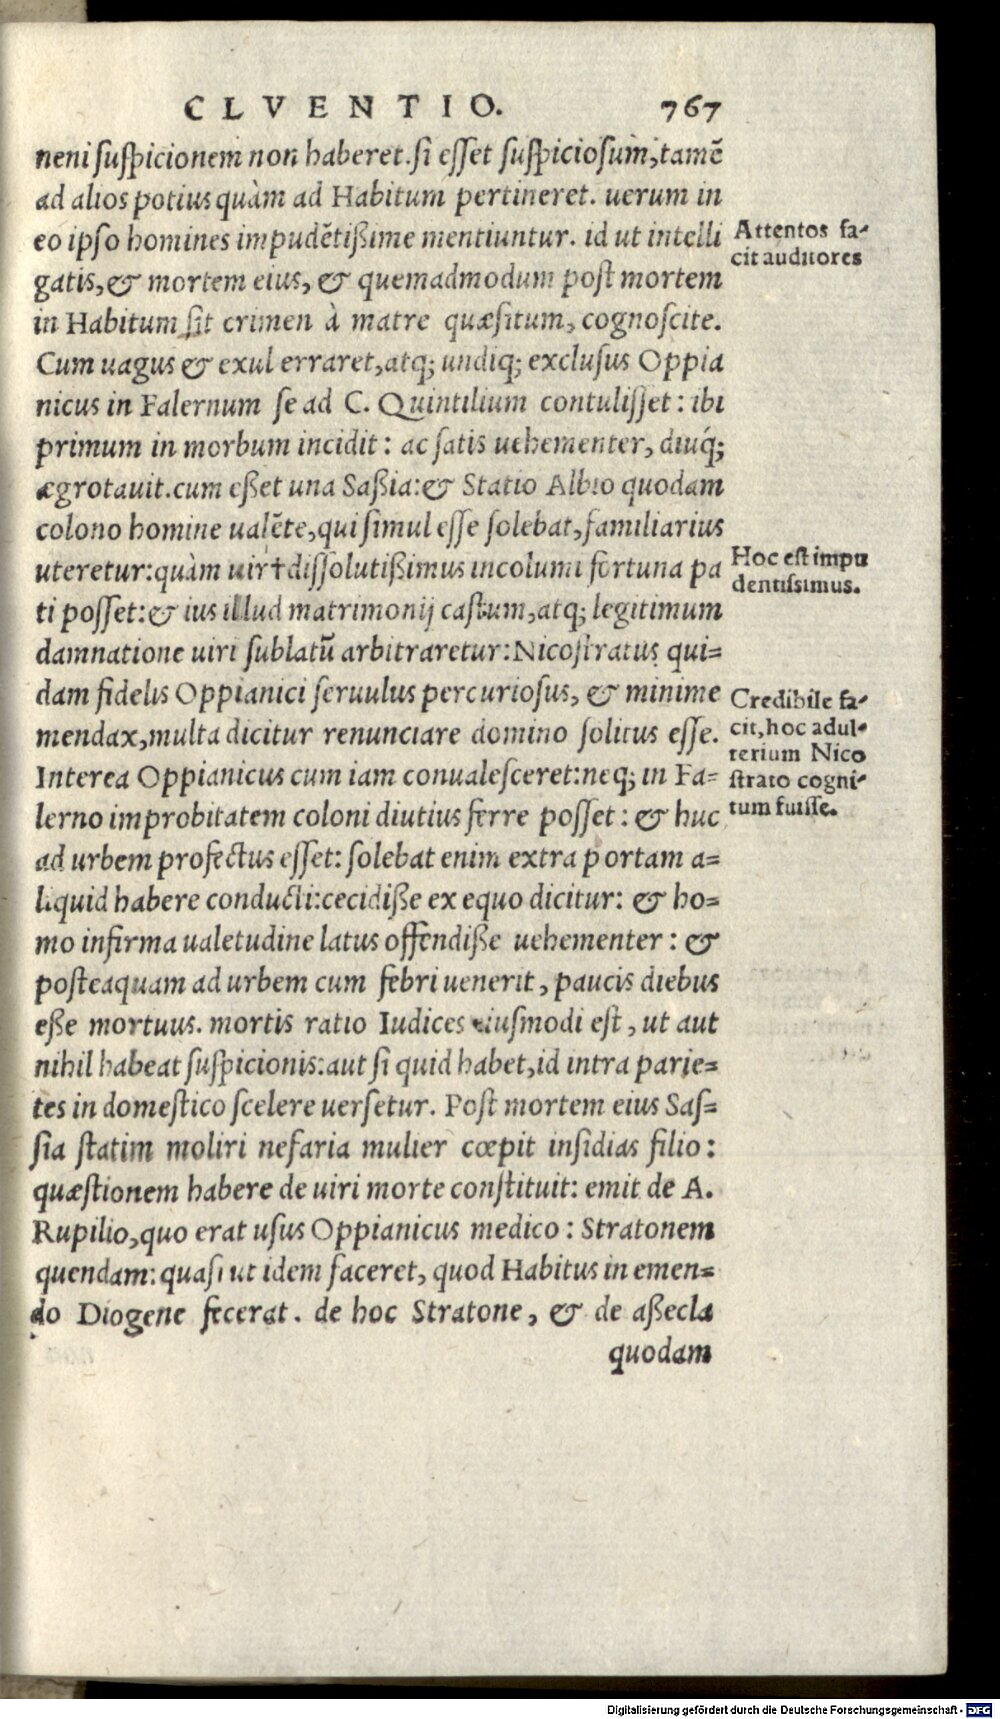 CLVENTIO. 767
neni suspicionem non haberet. si esset suspiciosum, tamẽ
ad alios potius quàm ad Habitum pertineret. uerum in
eo ipso homines impudẽtißime mentiuntur. id ut intelli
gatis, & mortem eius, & quemadmodum post mortem
in Habitum sit crimen à matre quæsitum, cognoscite.
Cum uagus & exul erraret, atq; undiq; exclusus Oppia
nicus in Falernum se ad C. Quintilium contulisset: ibi
primum in morbum incidit: ac satis uehementer, diuq́;
ægrotauit. cum eßet una Saßia: & Statio Albio quodam
colono homine ualẽte, qui simul esse solebat, familiarius
uteretur: quàm uir† dissolutißimus incolumi fortuna pa
ti posset: & ius illud matrimonij castum, atq; legitimum
damnatione uiri sublatũ arbitraretur: Nicostratus qui=
dam fidelis Oppianici seruulus percuriosus, & minime
mendax, multa dicitur renunciare domino solitus esse.
Interea Oppianicus cum iam conualesceret: neq; in Fa=
lerno improbitatem coloni diutius ferre posset: & huc
ad urbem profectus esset: solebat enim extra portam a=
liquid habere conducti: cecidiße ex equo dicitur: & ho=
mo infirma ualetudine latus offendiße uehementer: &
posteaquam ad urbem cum febri uenerit, paucis diebus
eße mortuus. mortis ratio Iudices eiusmodi est, ut aut
nihil habeat suspicionis: aut si quid habet, id intra parie=
tes in domestico scelere uersetur. Post mortem eius Sas=
sia statim moliri nefaria mulier cœpit insidias filio:
quæstionem habere de uiri morte constituit: emit de A.
Rupilio, quo erat usus Oppianicus medico: Stratonem
quendam: quasi ut idem faceret, quod Habitus in emen=
do Diogene fecerat. de hoc Stratone, & de aßecla
quodam
Attentos fa-
cit auditores
Hoc est impu
dentissimus.
Credibile fa-
cit, hoc adul-
terium Nico
strato cogni-
tum fuisse.
Digitalisierung gefördert durch die Deutsche Forschungsgemeinschaft - DFG